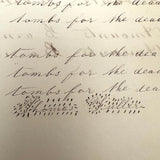 tombs for the dead
tombs for the dea
tombs for the dead
tombs for the dea
tombs for the dead